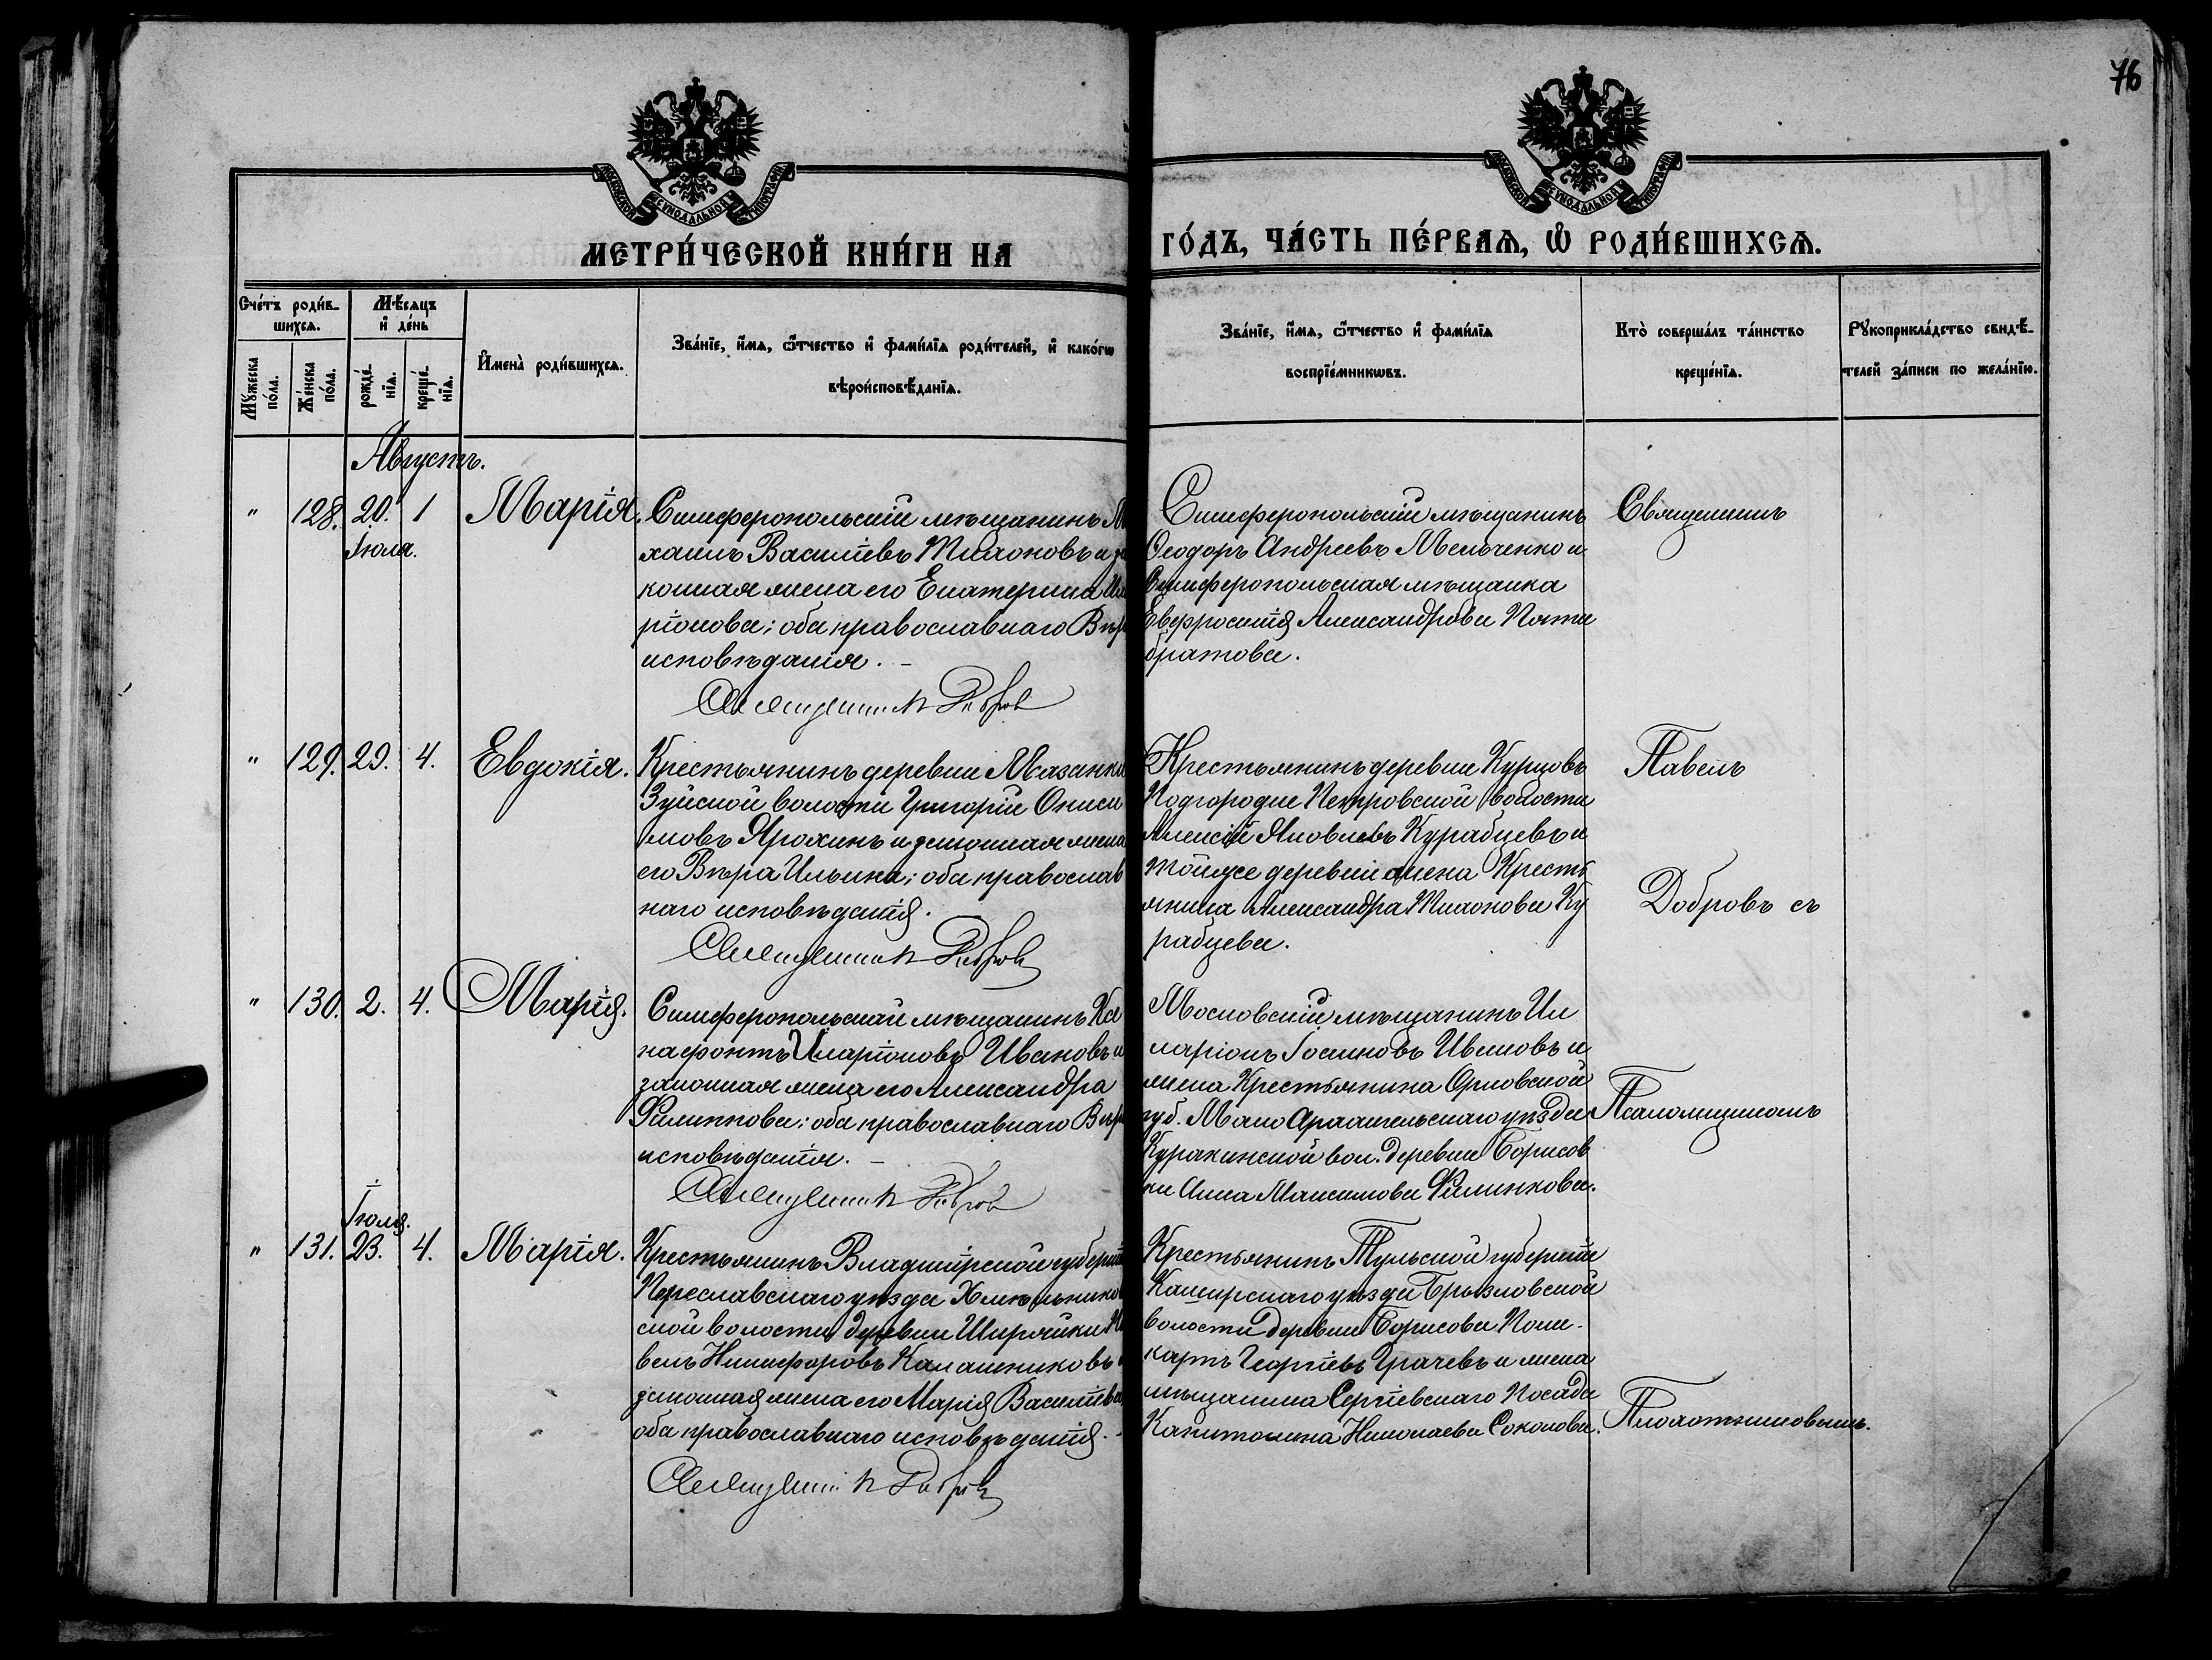 76
МОСКОВСКОЙ СѴНОДАЛЬНОЙ ТИПОГРАФІИ
МОСКОВСКОЙ СѴНОДАЛЬНОЙ ТИПОГРАФІИ
МЕТРИ́ЧЕСКОЙ КНИ́ГИ НА
ГО́ДЪ, ЧА́СТЬ ПЕ́РВАѦ, Ѡ҆ РОДИ́ВШИХСѦ.
Сче́тъ роди́в-
шихсѧ.
Мѣ́сѧцъ
и҆ де́нь
Мꙋ́жеска
по́ла.
Же́нска
по́ла.
рожде́-
нїѧ.
креще́-
нїѧ.
И҆мена̀ роди́вшихсѧ.
Зва́нїе, и҆́мѧ, ѻ҆́тчество и҆ фами́лїѧ роди́телей, и҆ како́гѡ
вѣроисповѣ́данїѧ.
Зва́нїе, и҆́мѧ, ѻ҆́тчество и҆ фами́лїѧ
воспрїе́мникѡвъ.
Кто̀ соверша́лъ та́инство
креще́нїѧ.
Рꙋкоприкла́дство свидѣ́-
телей за́писи по жела́нїю.
Августъ.
" 128. 20. 1 Марія.
Іюля.
Симферопольскій мѣщанинъ Ми
хаилъ Василіевъ Тихоновъ и за
конная жена его Екатерина Ила
ріонова; оба православнаго Вѣро
исповѣданія. -
Священникъ Добровъ
Симферопольскій мѣщанинъ
Ѳеодоръ Андреевъ Мельченко и
Симферопольская мѣщанка
Евфросинія Александрова Пяти
братова.
Священникъ
" 129. 29. 4. Евдокія.
Крестьянинъ деревни Мазанки
Зуйской волости Григорій Ониси
мовъ Ярохинъ и законная жена
его Вѣра Ильина; оба православ
наго исповѣданія.
Священникъ Добровъ
Крестьянинъ деревни Курцовъ
Подгородне Петровской волости
Алексій Яковлевъ Курабцевъ и
той же деревни жена Кресть
янина Александра Тихонова Ку
рабцева.
Павелъ
Добровъ съ
" 130. 2. 4. Марія.
Симферопольскій мѣщанинъ Ксе
нафонтъ Иларіоновъ Ивановъ и
законная жена его Александра
Филиппова; оба православнаго Вѣро
исповѣданія. -
Священникъ Добровъ
Московскій мѣщанинъ Ил
ларіонъ Іоанновъ Ивановъ и
жена Крестьянина Орловской
губ. Мало Архангельскаго уѣзда
Куракинской вол. деревни Борисов
ки Анна Максимова Филиппова.
Псаломщикомъ
Іюля.
" 131. 23. 4. Марія.
Крестьянинъ Владимірской губерніи
Переславскаго уѣзда Хмѣльников
ской волости деревни Ширяйки Па
велъ Никифоровъ Калашниковъ и
законная жена его Марія Василіева
оба православнаго исповѣданія. -
Священникъ Добровъ
Крестьянинъ Тульской губерніи
Каширскаго уѣзда Брызловской
волости деревни Борисова Поли-
карпъ Георгіевъ Грачевъ и жена
мѣщанина Сергіевскаго Посада
Капитолина Николаева Соколова.
Плохотниковымъ.